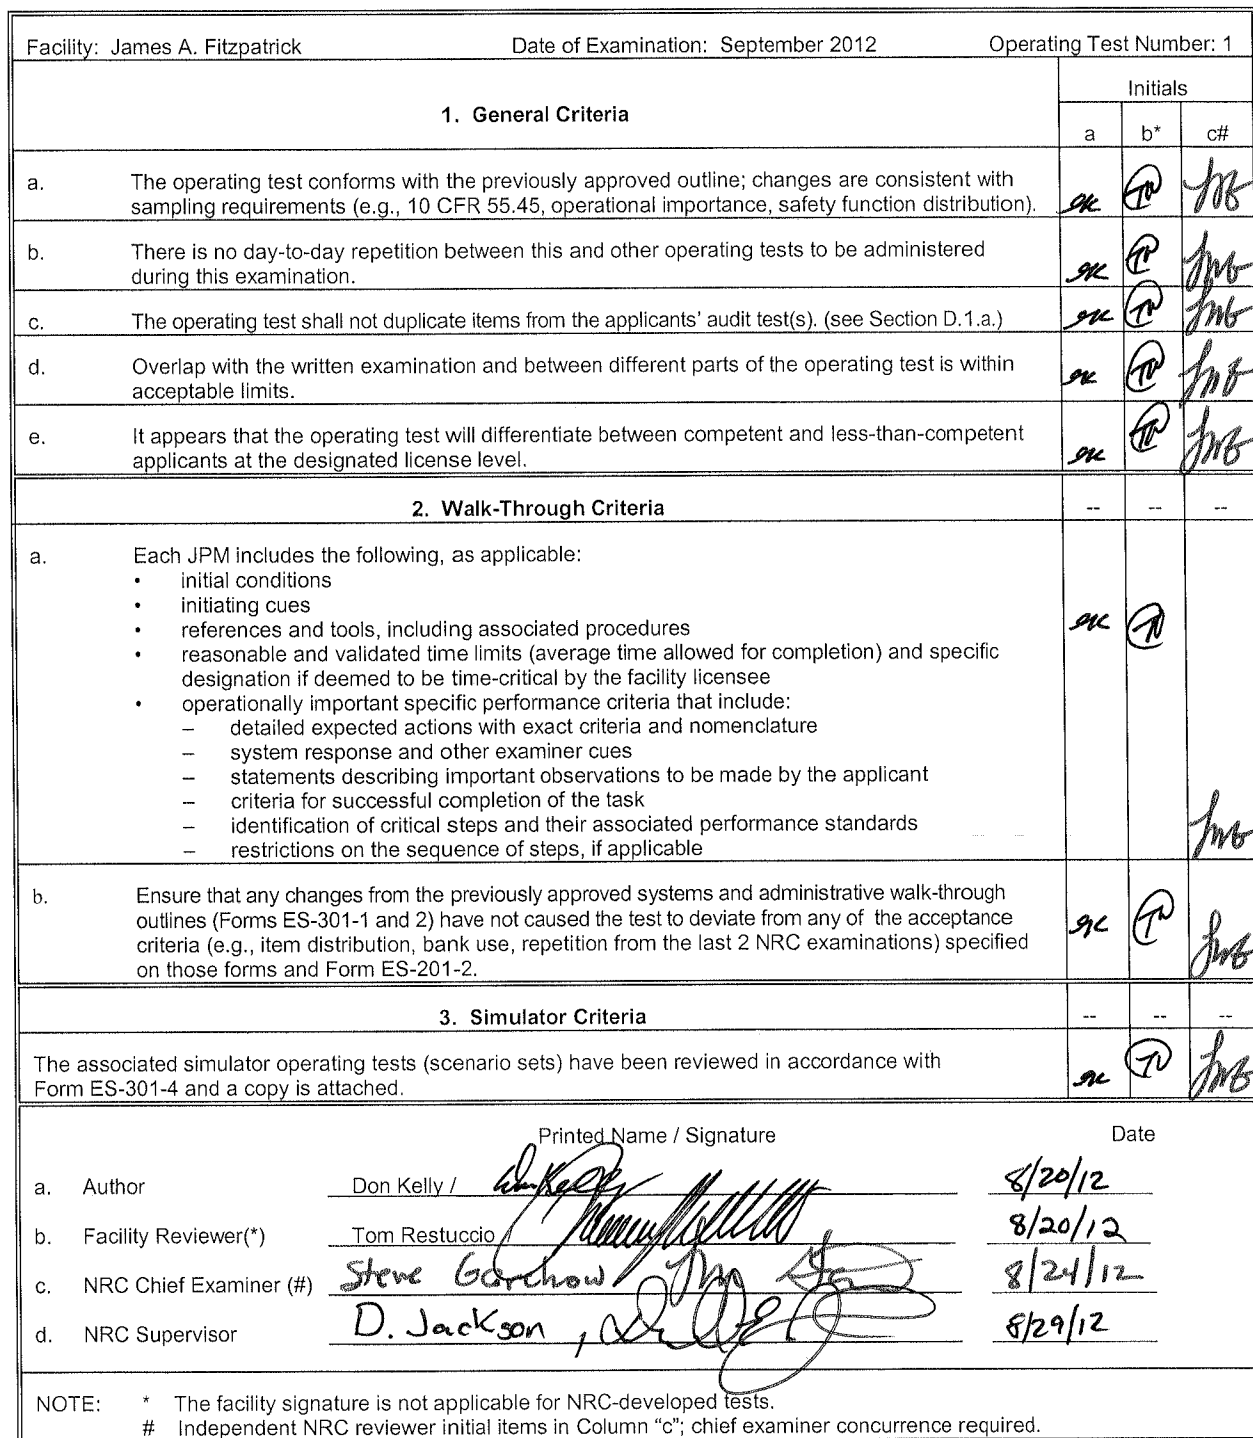 Facility: James A. Fitzpatrick Date of Examination: September 2012 Operating Test Number: 1
Initials
1. General Criteria
a b* c#
a. The operating test conforms with the previously approved outline; changes are consistent with
sampling requirements (e.g., 10 CFR 55.45, operational importance, safety function distribution).
b. There is no day-to-day repetition between this and other operating tests to be administered
during this examination.
c. The operating test shall not duplicate items from the applicants' audit test(s). (see Section D.1.a.)
d. Overlap with the written examination and between different parts of the operating test is within
acceptable limits.
e. It appears that the operating test will differentiate between competent and less-than-competent
applicants at the designated license level.
2. Walk-Through Criteria -- -- --
a. Each JPM includes the following, as applicable:
• initial conditions
• initiating cues
• references and tools, including associated procedures
• reasonable and validated time limits (average time allowed for completion) and specific
designation if deemed to be time-critical by the facility licensee
• operationally important specific performance criteria that include:
– detailed expected actions with exact criteria and nomenclature
– system response and other examiner cues
– statements describing important observations to be made by the applicant
– criteria for successful completion of the task
– identification of critical steps and their associated performance standards
– restrictions on the sequence of steps, if applicable
b. Ensure that any changes from the previously approved systems and administrative walk-through
outlines (Forms ES-301-1 and 2) have not caused the test to deviate from any of the acceptance
criteria (e.g., item distribution, bank use, repetition from the last 2 NRC examinations) specified
on those forms and Form ES-201-2.
3. Simulator Criteria -- -- --
The associated simulator operating tests (scenario sets) have been reviewed in accordance with
Form ES-301-4 and a copy is attached.
Printed Name / Signature Date
a. Author Don Kelly / 8/20/12
b. Facility Reviewer(*) Tom Restuccio / 8/20/12
c. NRC Chief Examiner (#) Steve Garchow 8/24/12
d. NRC Supervisor D. Jackson, 8/29/12
NOTE: * The facility signature is not applicable for NRC-developed tests.
# Independent NRC reviewer initial items in Column "c"; chief examiner concurrence required.